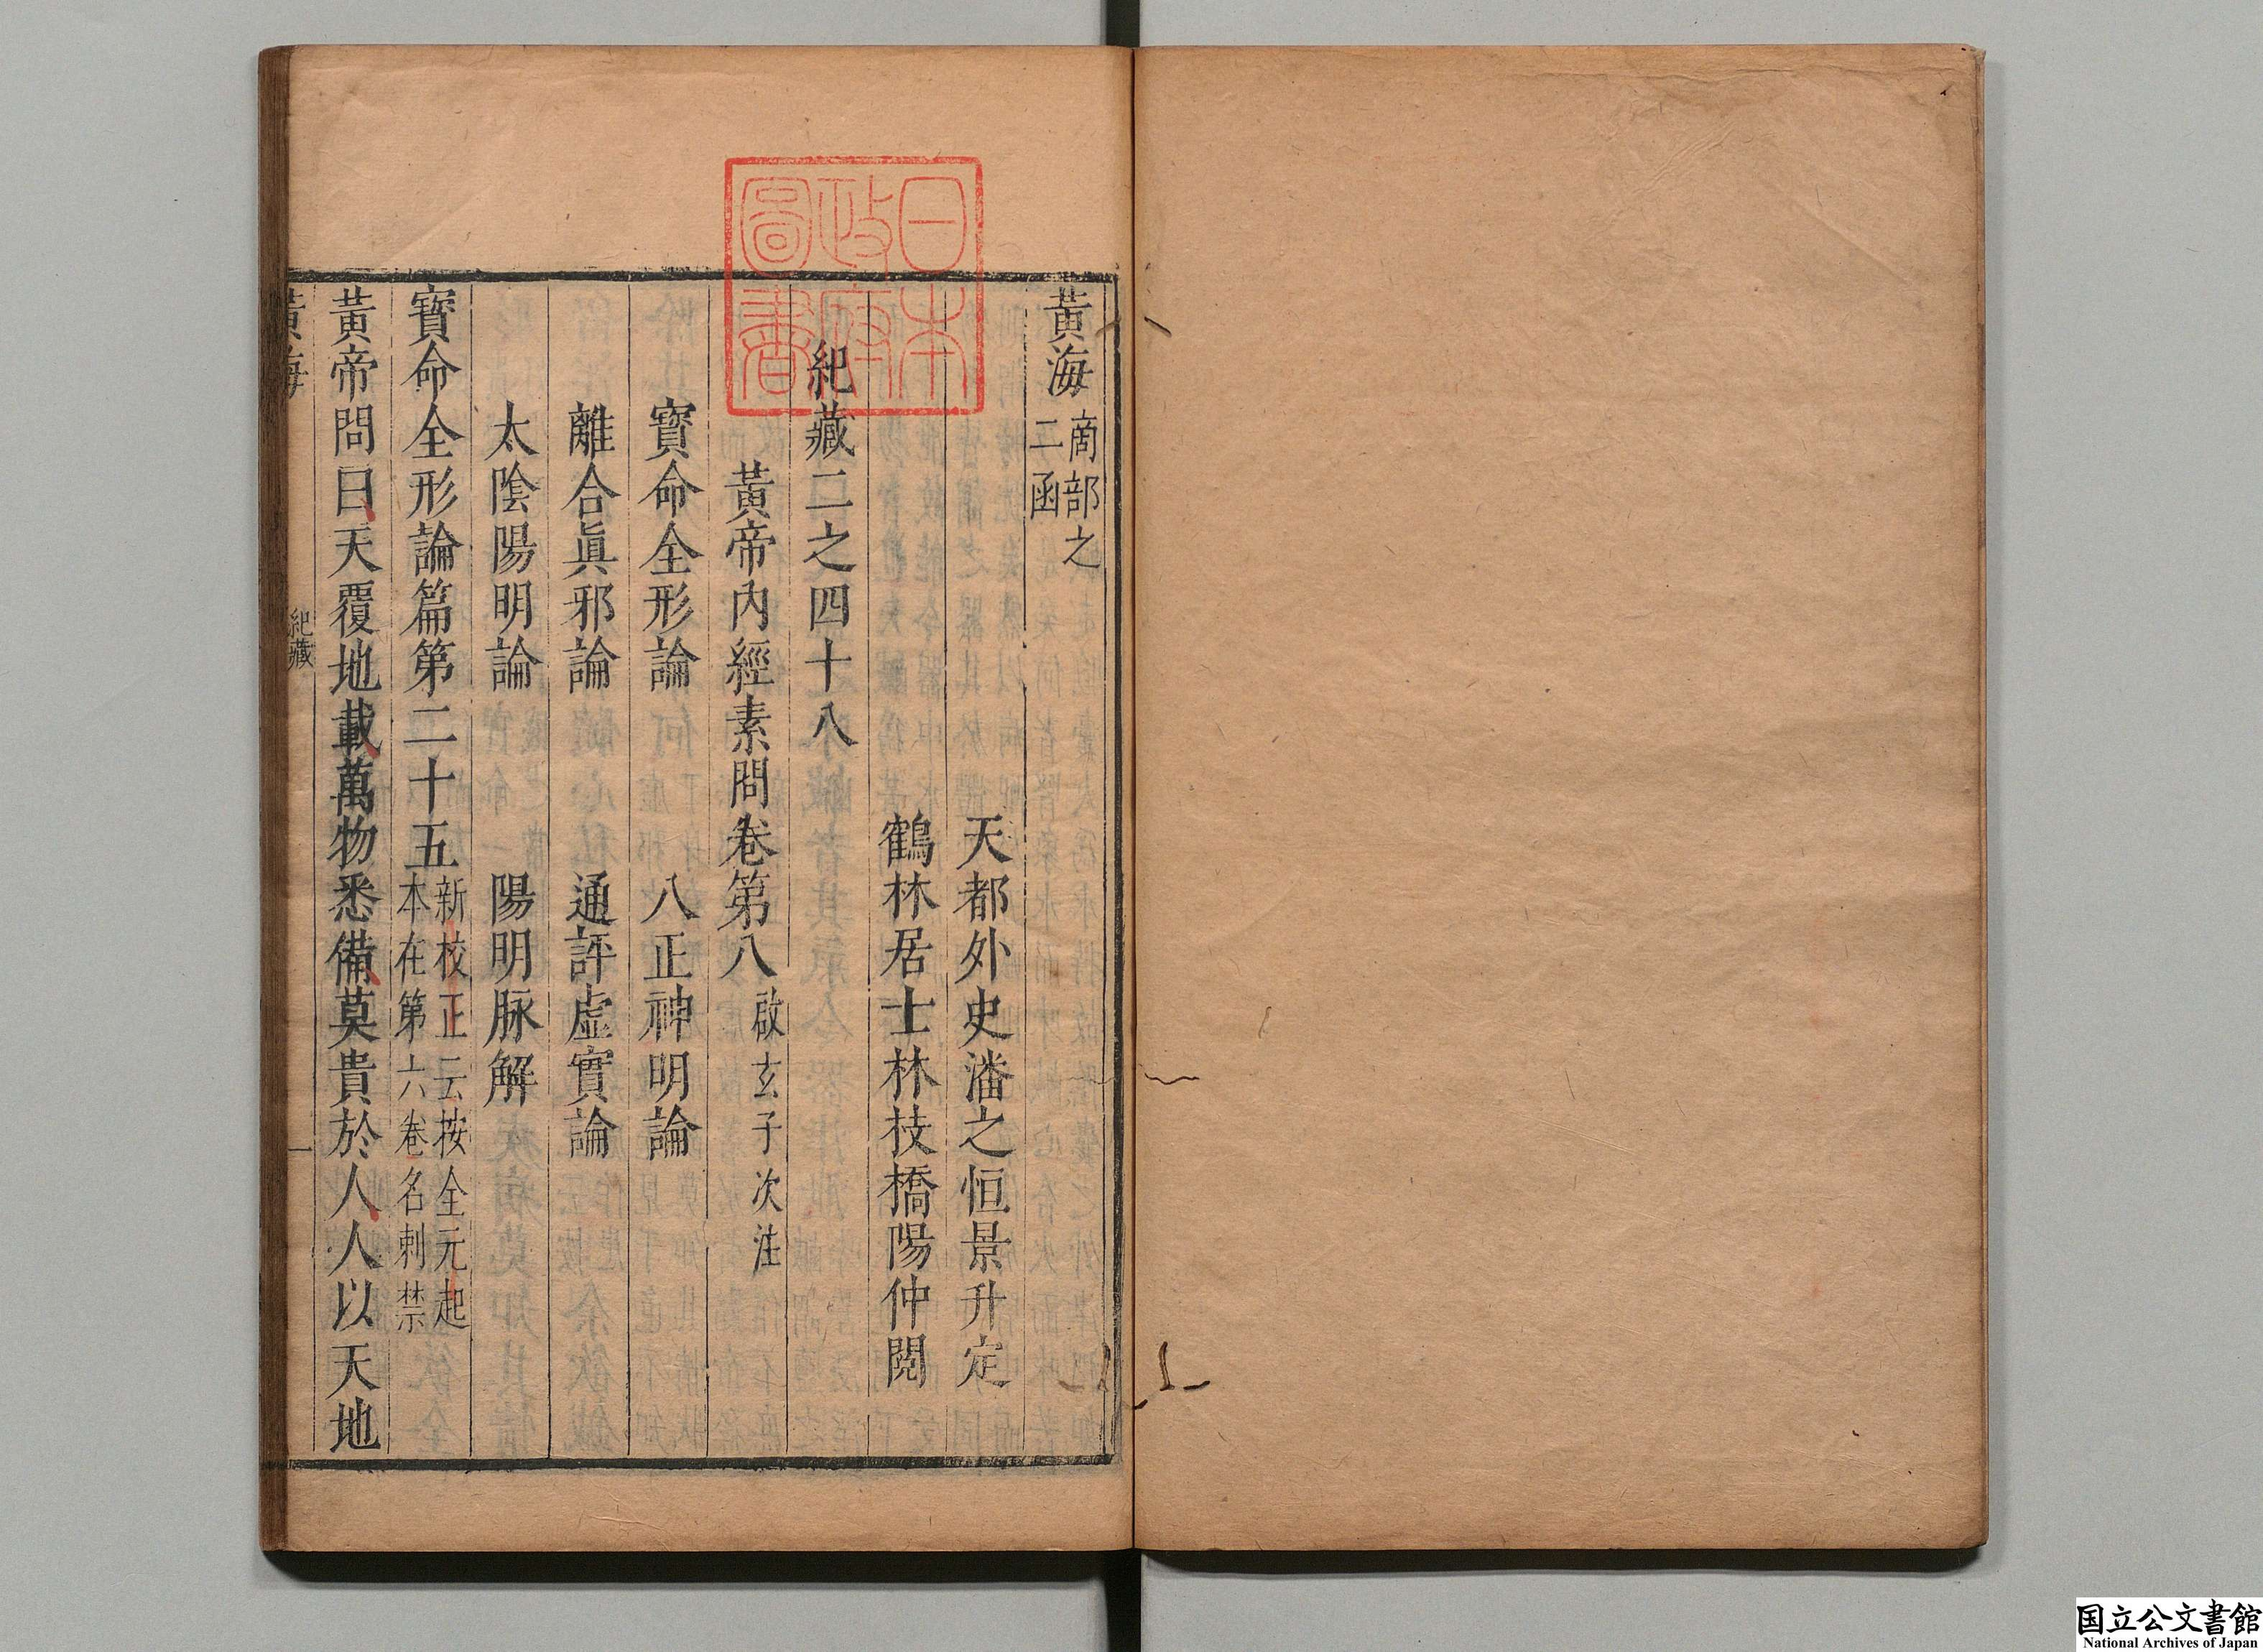 黃海
商部之
二函
天都外史潘之恒景升定
鶴林居士林技橋陽仲閱
紀藏二之四十八
黃帝內經素問卷第八 啟玄子次注
寶命全形論 八正神明論
離合眞邪論 通評虛實論
太陰陽明論 陽明脉解
寶命全形論篇第二十五
新校正云按全元起
本在第六卷名刺禁
黃帝問曰天覆地載萬物悉備莫貴於人人以天地
黃海
紀藏
一
日本
政府
圖書
国立公文書館
National Archives of Japan